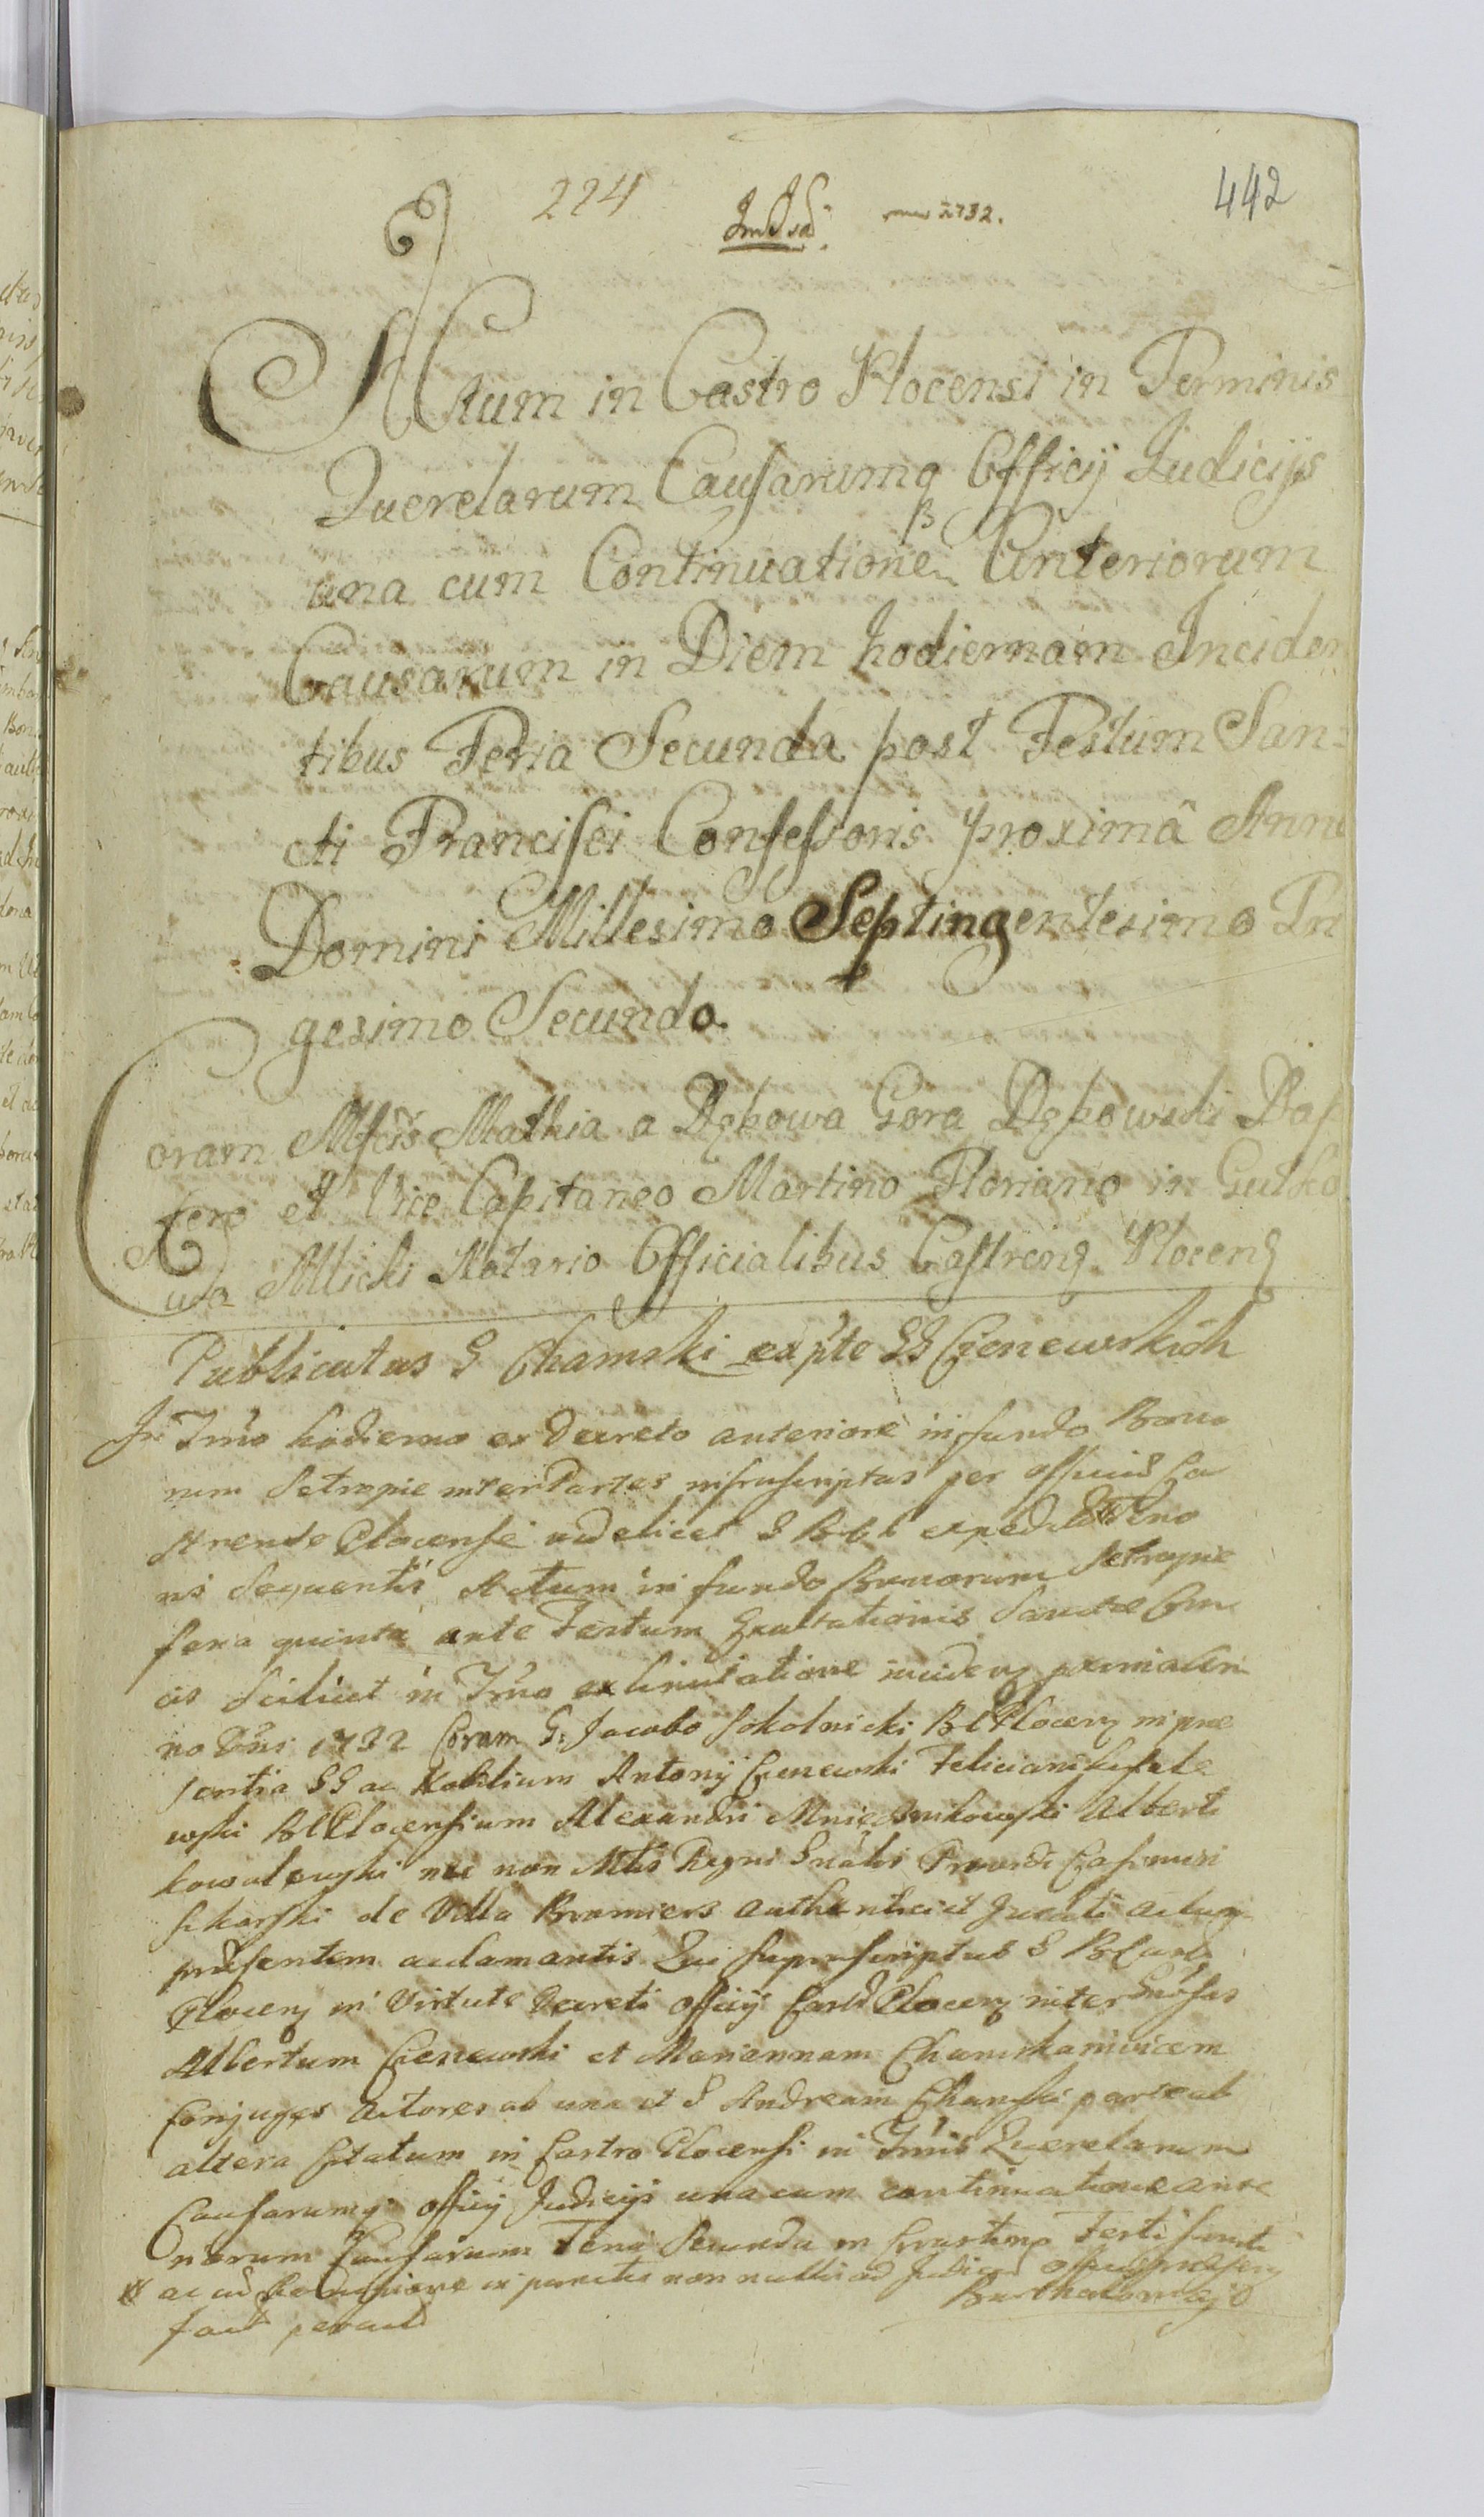 224
442
1732.
Actum in Castro Plocensi in Terminis
Querelarum Causarumq Officij Judicijs
una cum Continuatione Anteriorum
Causarum in Diem hodiernam Inciden
tibus Feria Secunda post Festum San=
cti Francisci Confessoris proximâ Anno
Domini Millesimo Septingentesimo Tri
gesimo Secundo.
Coram Mathia a Dębowa Gora Dębowski Dap
fero et Vice Capitaneo Martino Floriano in Gulko
wo Milicki Notario Officialibus Castreng Ploceng
Publicatus G Chamski ex pte GG Czenewskich
In Tmo hodierno ex Decreto anteriore in fundo Bono
rum Setropie inter Partes infrascriptas per officiũ Ca
strense Plocense videlicet expeditũ Teno
ris Sequentis Actum in fundo Bonorum Setropie
feria quinta ante Festum Exaltationis Sanctae Cru
cis Scilicet in Tmo ex limitatione inciden
no Dni 1732 Coram G. Jacobo Sokolnicki Ploceng in prae
sentia GG ac Nobilium Antonij Czenewski Feliciani
wski Plocensium Alexandri Alberti
Kowalewski nec non Mtis Regni Gnalis Providi Casimiri
Sikorski de Villa authentici et Jurati actum
praesentem aclamantis Qui suprascriptus G
Ploceng in Virtute Decreti officij Castr Ploceng inter Gnosas
Albertum Czenewski et Mariannam Chamska
Conjuges actores ab una et G Andream Chamski parte ab
altera Citatum in Castro Plocensi in Tmis Querelarum
Causarumq officij Judicijs una cum continuatione ante
riorum Causarum Feria Secunda in Crastino Festi Sancti
Bartholomaei
ac ad in punctis non nullis ad